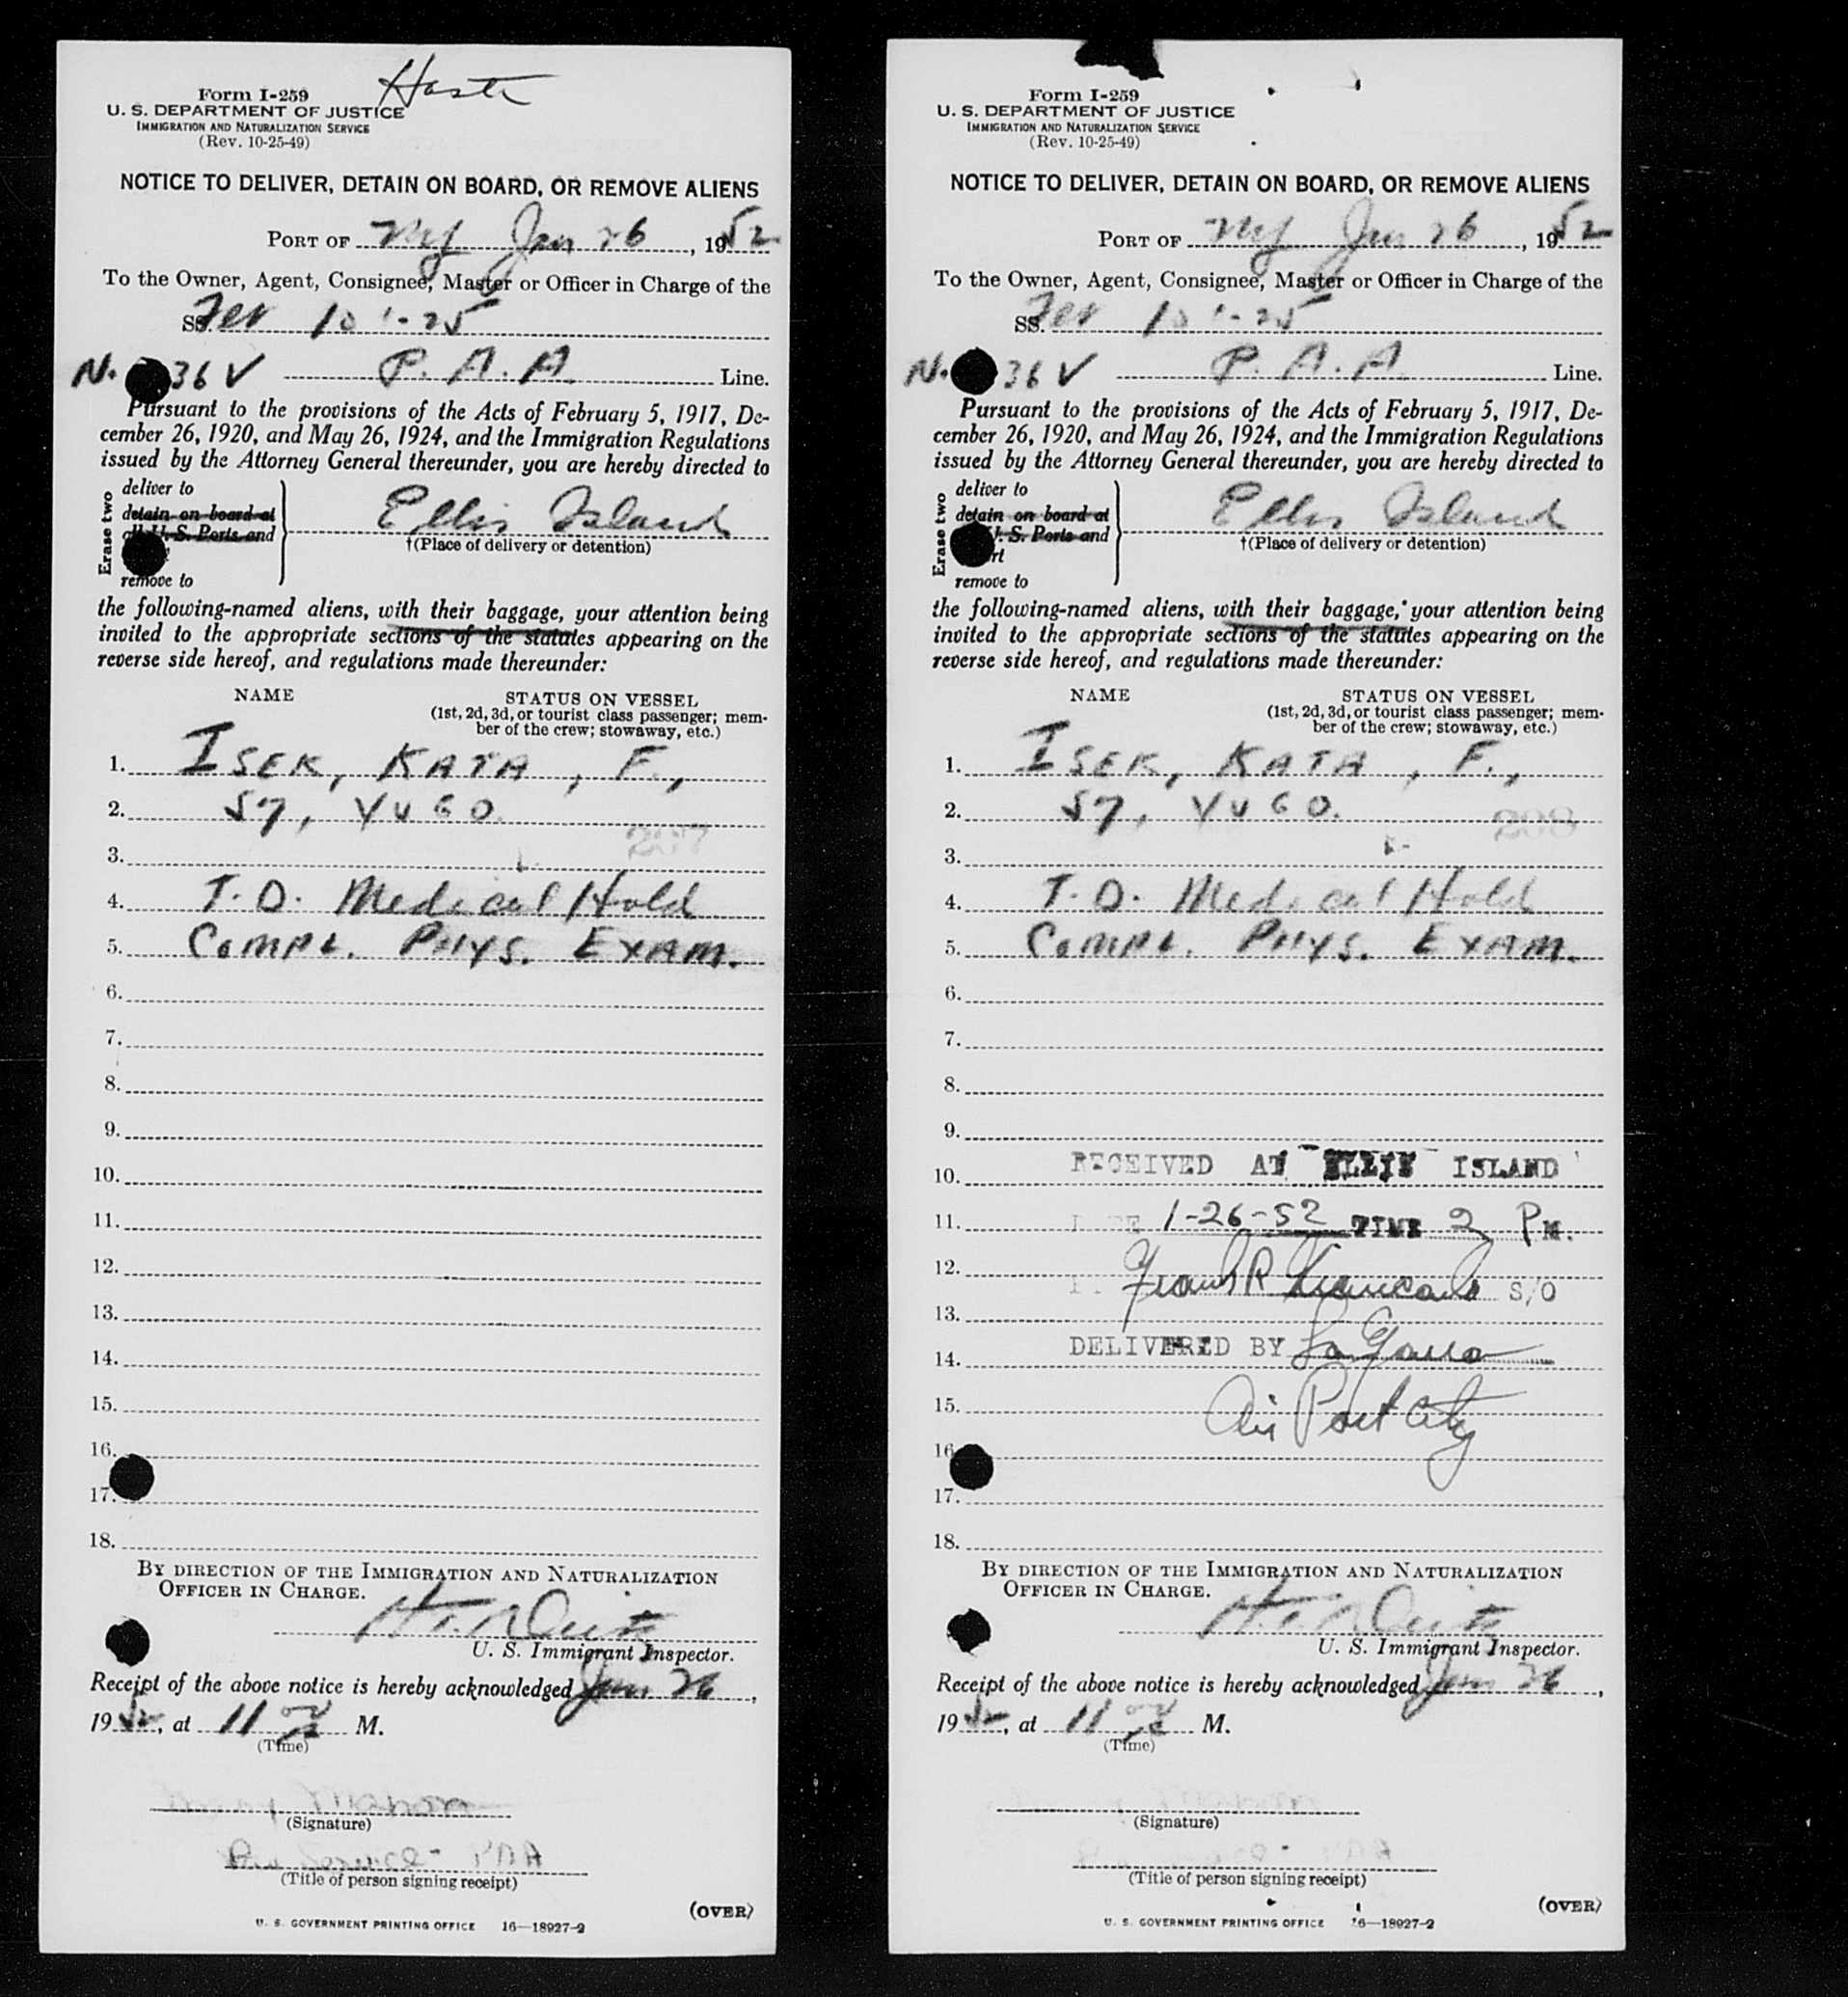 Form I-259
U. S. DEPARTMENT OF JUSTICE
IMMIGRATION AND NATURALIZATION SERVICE
(Rev. 10-25-49)
NOTICE TO DELIVER, DETAIN ON BOARD, OR REMOVE ALIENS
PORT OF NY Jan 26, 1952
To the Owner, Agent, Consignee, Master or Officer in Charge of the
SS. 101-25
N. 36 V P. A. A. Line.
Pursuant to the provisions of the Acts of February 5, 1917, De-
cember 26, 1920, and May 26, 1924, and the Immigration Regulations
issued by the Attorney General thereunder, you are hereby directed to
Erase two
deliver to
detain on board at
U. S. Ports and
remove to
Ellis Island
†(Place of delivery or detention)
the following-named aliens, with their baggage, your attention being
invited to the appropriate sections of the statutes appearing on the
reverse side hereof, and regulations made thereunder:
NAME STATUS ON VESSEL
(1st, 2d, 3d, or tourist class passenger; mem-
ber of the crew; stowaway, etc.)
1. ISEK, KATA, F.,
2. 57, YUGO.
3.
4. T. D. Medical Hold
5. COMPL. PHYS. EXAM.
6.
7.
8.
9.
10.
11.
12.
13.
14.
15.
16.
17.
18.
BY DIRECTION OF THE IMMIGRATION AND NATURALIZATION
OFFICER IN CHARGE.
U. S. Immigrant Inspector.
Receipt of the above notice is hereby acknowledged Jan 26,
1952, at 11 M.
(Time)
(Signature)
Service - PAA
(Title of person signing receipt)
(OVER)
U. S. GOVERNMENT PRINTING OFFICE 16—18927-2
Form I-259
U. S. DEPARTMENT OF JUSTICE
IMMIGRATION AND NATURALIZATION SERVICE
(Rev. 10-25-49)
NOTICE TO DELIVER, DETAIN ON BOARD, OR REMOVE ALIENS
PORT OF NY Jan 26, 1952
To the Owner, Agent, Consignee, Master or Officer in Charge of the
SS. 101-25
N. 36 V P. A. A. Line.
Pursuant to the provisions of the Acts of February 5, 1917, De-
cember 26, 1920, and May 26, 1924, and the Immigration Regulations
issued by the Attorney General thereunder, you are hereby directed to
Erase two
deliver to
detain on board at
U. S. Ports and
remove to
Ellis Island
†(Place of delivery or detention)
the following-named aliens, with their baggage, your attention being
invited to the appropriate sections of the statutes appearing on the
reverse side hereof, and regulations made thereunder:
NAME STATUS ON VESSEL
(1st, 2d, 3d, or tourist class passenger; mem-
ber of the crew; stowaway, etc.)
1. ISEK, KATA, F.,
2. 57, YUGO.
208
3.
4. T. D. Medical Hold
5. COMPL. PHYS. EXAM.
6.
7.
8.
9.
10. RECEIVED AT ELLIS ISLAND
11. 1-26-52 TIME 2 PM.
12. Frank R S/O
13.
14. DELIVERED BY
15. Air Port City
16
17.
18.
BY DIRECTION OF THE IMMIGRATION AND NATURALIZATION
OFFICER IN CHARGE.
U. S. Immigrant Inspector.
Receipt of the above notice is hereby acknowledged Jan 26,
1952, at 11 M.
(Time)
(Signature)
(Title of person signing receipt)
(OVER)
U. S. GOVERNMENT PRINTING OFFICE 16—18927-2